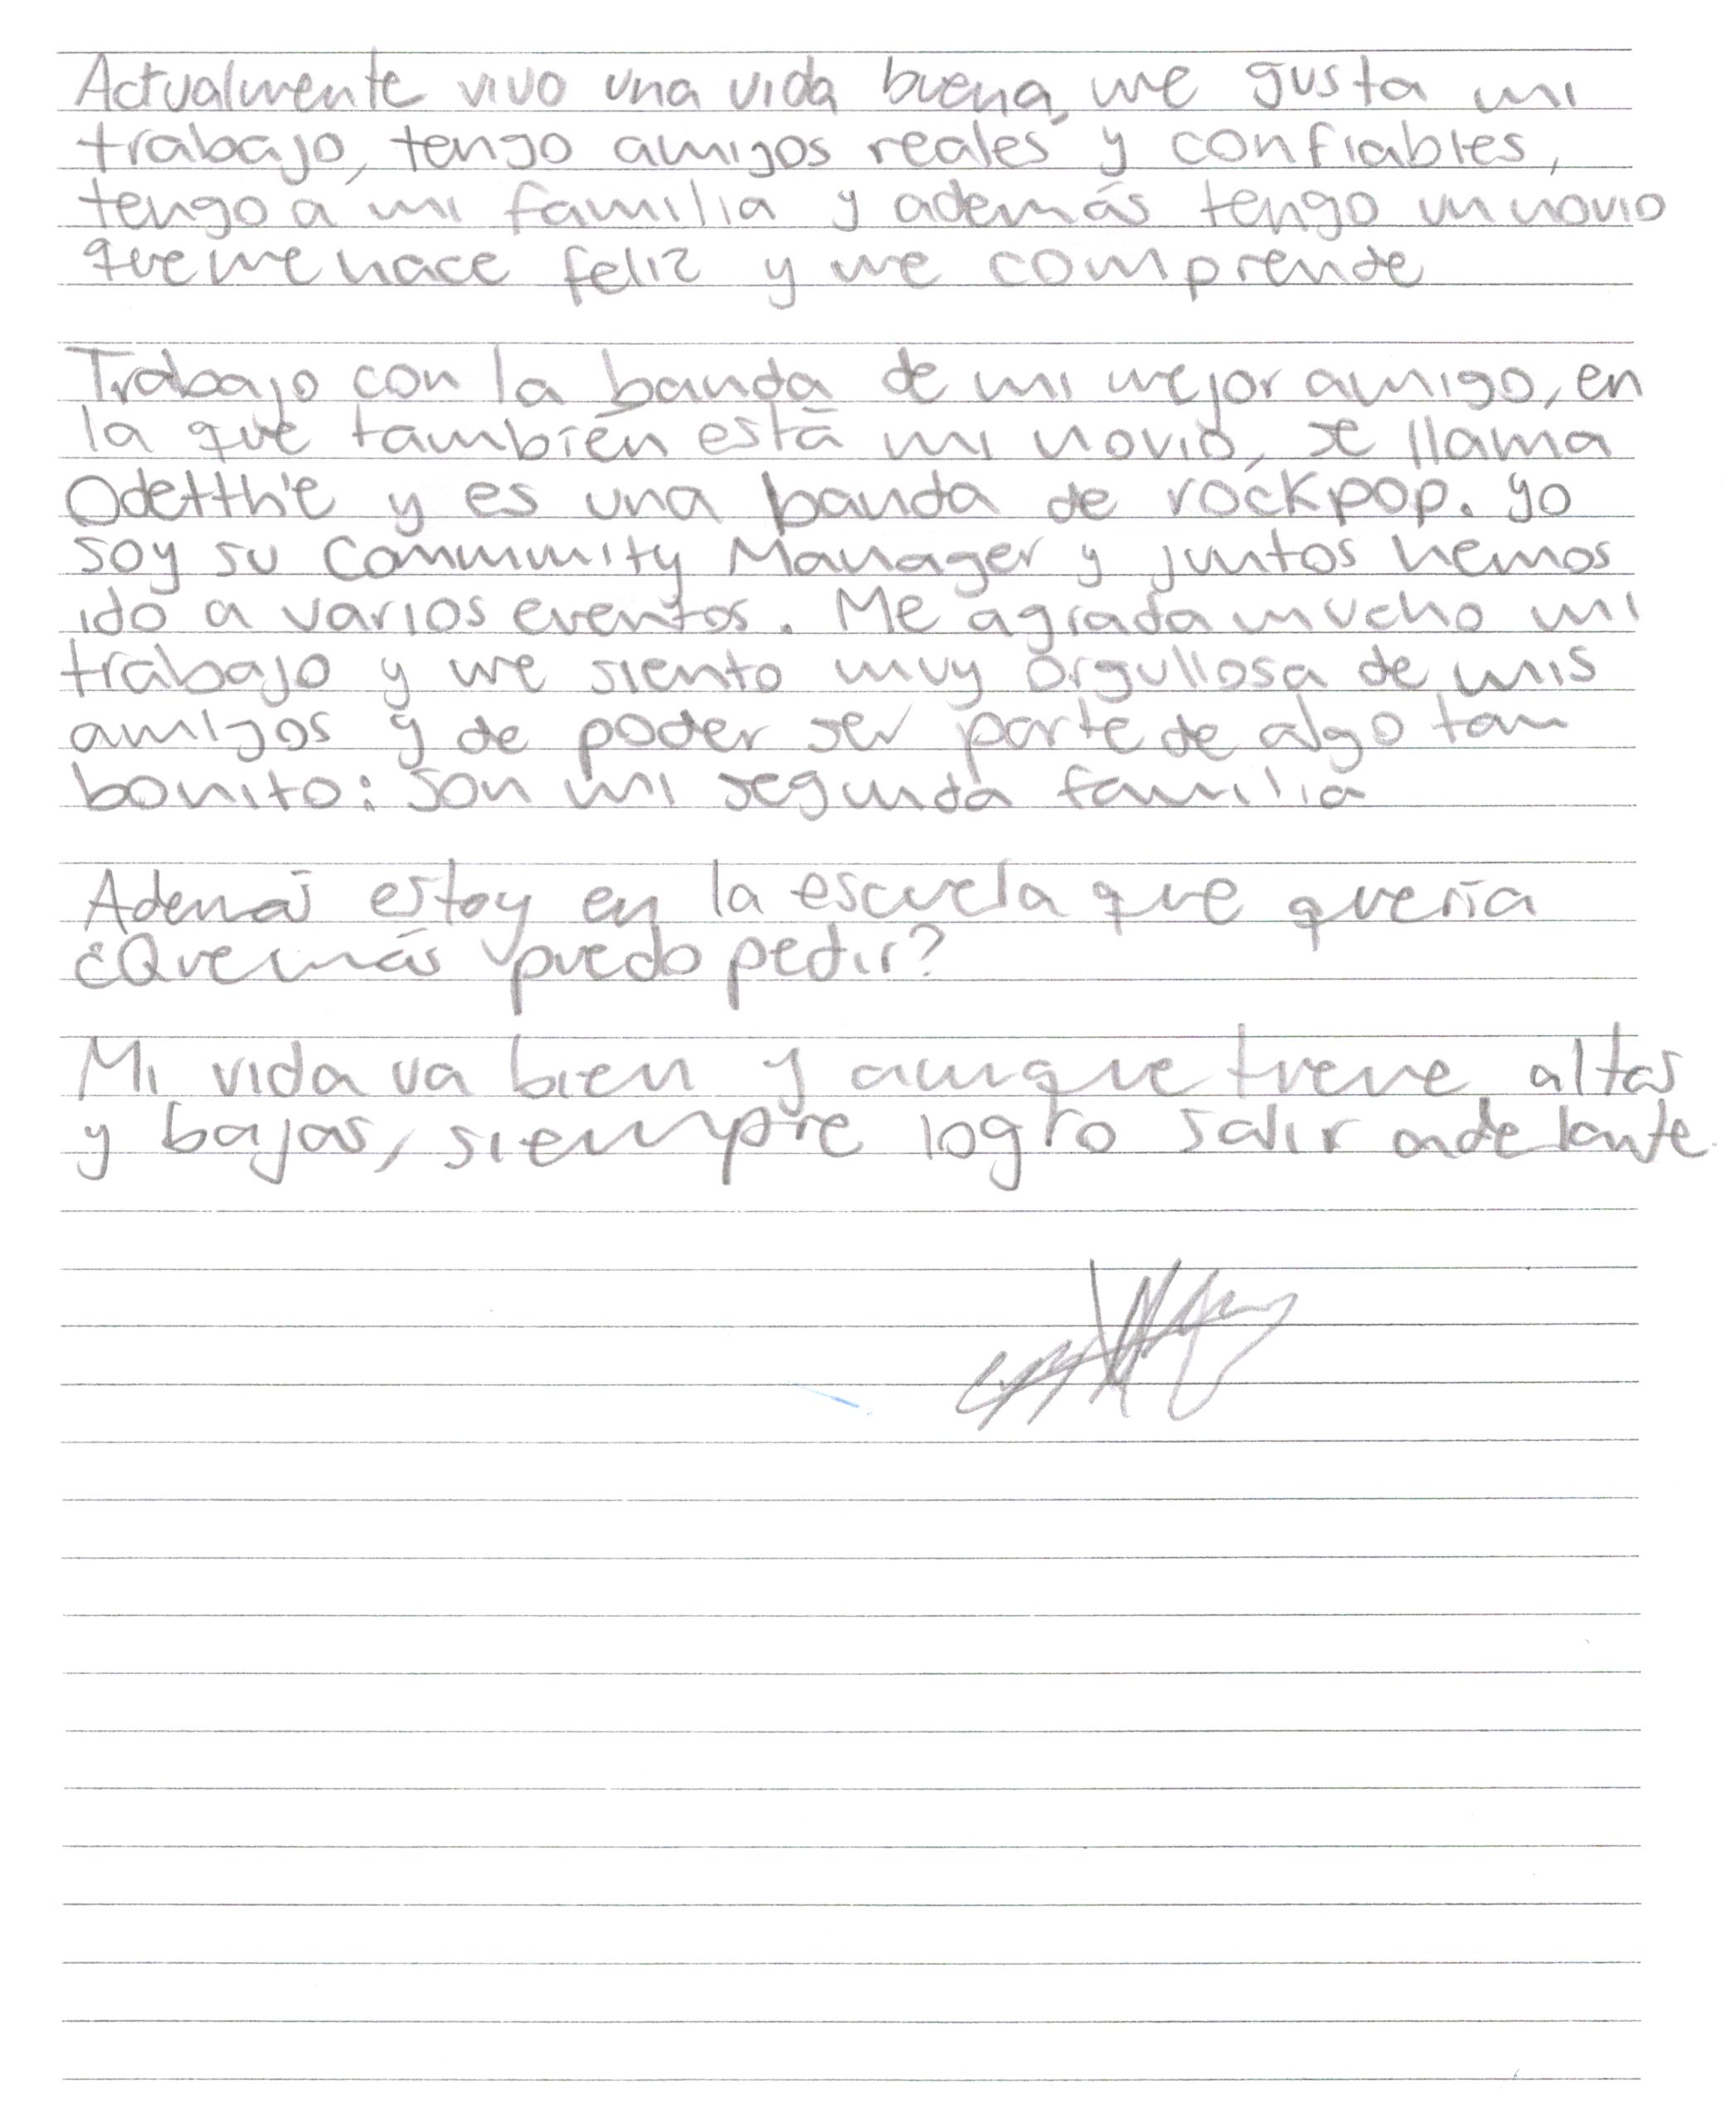 Actualmente vivo una vida buena, me gusta mi
trabajo, tengo amigos reales y confiables,
tengo a mi familia y además tengo un novio
que me hace feliz y me comprende
Trabajo con la banda de mi mejor amigo, en
la que también está mi novio, se llama
Odetth'e y es una banda de rockpop. yo
soy su Community Manager y juntos hemos
ido a varios eventos. Me agrada mucho mi
trabajo y me siento muy orgullosa de mis
amigos y de poder ser parte de algo tan
bonito: son mi segunda familia
Además estoy en la escuela que quería
¿Que más puedo pedir?
Mi vida va bien y aunque tiene altas
y bajas, siempre logro salir adelante.